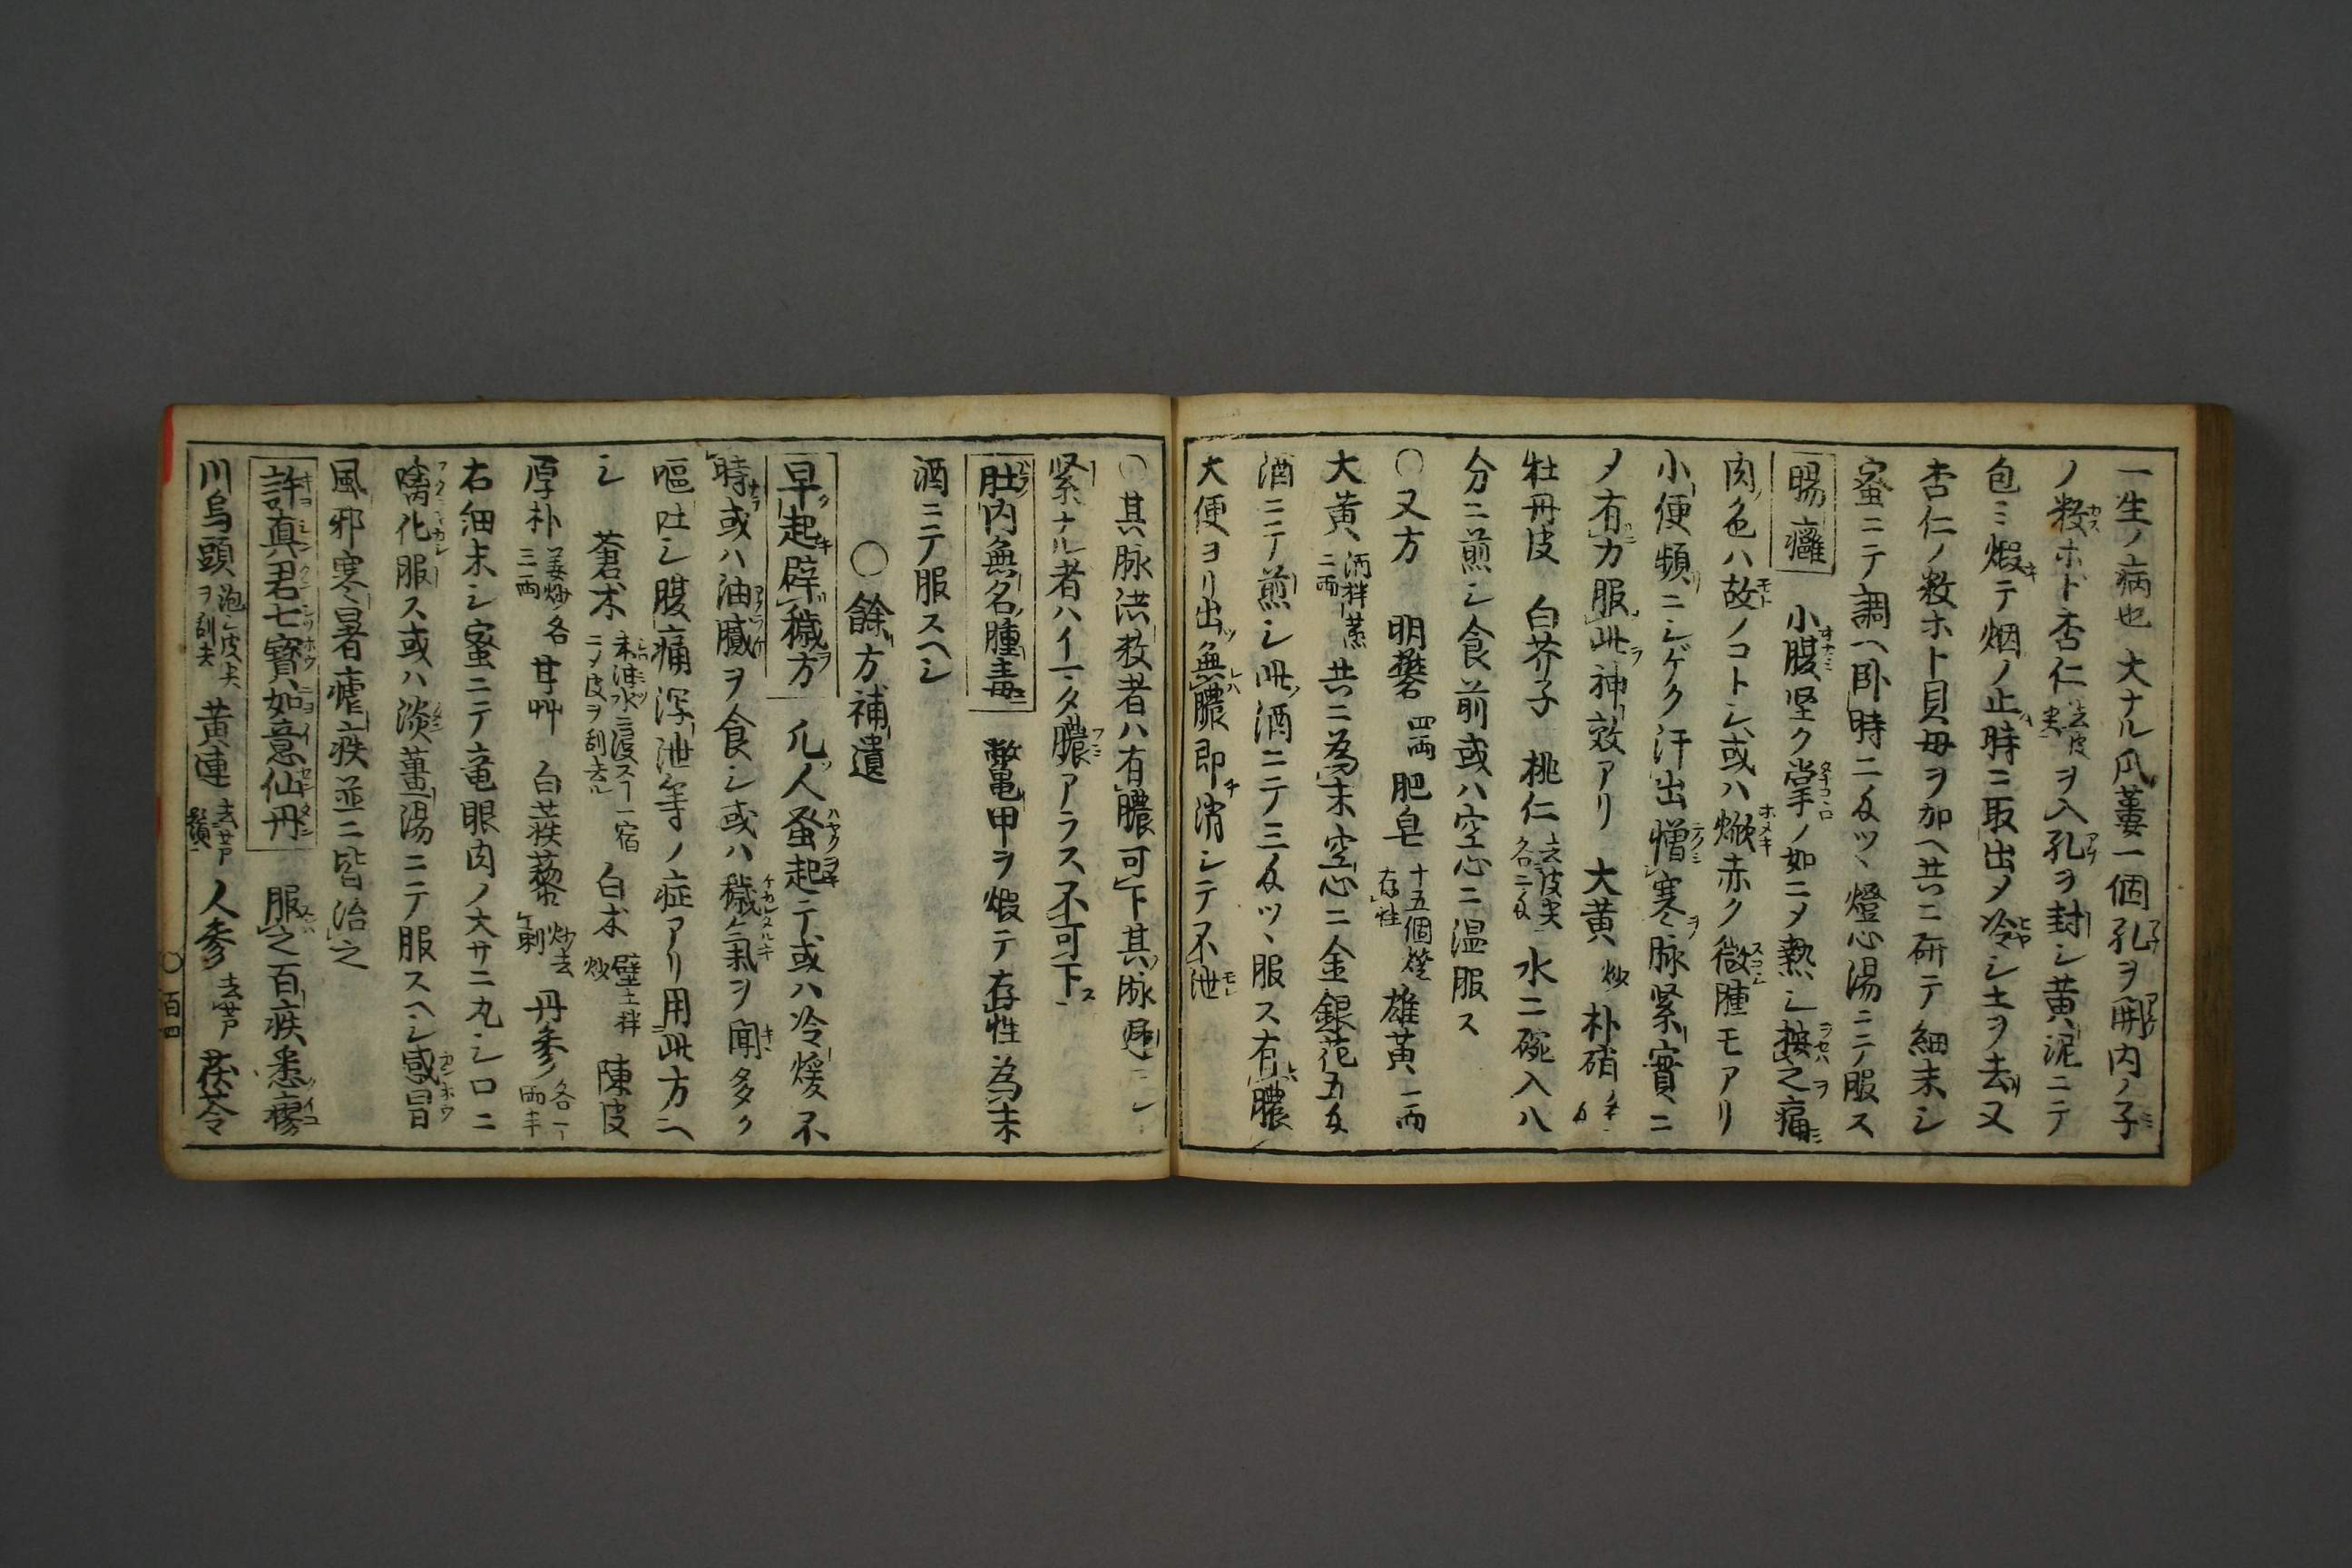 一生ノ病也大ナル瓜蔞一個孔ヲ開内ノ子
ノ数ホド杏仁去皮尖ヲ入孔ヲ封シ黄泥ニテ
包ミ煆テ烟ノ止時ニ取出メ冷シ土ヲ去又
杏仁ノ数ホト貝母ヲ加ヘ共ニ研テ細末シ
蜜ニテ調ヘ臥時ニ匁ツヽ燈心湯ニテ服ス
腸癰 小腹坚ク掌ノ如ニメ熱シ按之痛
肉色ハ故ノコトシ或ハ焮赤ク微腫モアリ
小便頻ニシゲク汗出憎寒脉緊實ニ
メ有力服此神效アリ 大黄炒 朴硝
牡丹皮 白芥子 桃仁去皮尖各二匁 水二碗入八
分ニ煎シ食前或ハ空心ニ温服ス
○又方 明礬四両 肥皂十五個煅存性 雄黄一両
大黄酒拌蒸二両 共ニ為末空心ニ金銀花五匁
酒ニテ煎シ此酒ニテ三匁ツヽ服ス有膿
大便ヨリ出無膿即消シテ不泄
○其脉洪数者ハ有膿可下其脉遅
緊ナル者ハイマタ膿アラス不可下
肚内無名腫毒 鼈甲ヲ煆テ存性為末
酒ニテ服スヘシ
○餘方補遺
早起辟穢方 凡人蚤起テ或ハ冷煖不
時或ハ油膩ヲ食シ或ハ穢氣ヲ聞多ク
嘔吐シ腹痛泻泄等ノ症アリ用此方ニヘ
シ 蒼朮米泔水ニ浸スヿ一宿ニメ皮ヲ刮去 白朮壁土拌炒 陳皮
厚朴姜炒各三両 甘艸 白蒺藜炒去刺 丹参各一両半
右細末シ蜜ニテ竜眼肉ノ大サニ丸シ口ニ
噙化服ス或ハ淡薑湯ニテ服スヘシ感冒
風邪寒暑瘧疾並ニ皆治之
許真君七寳如意仙丹 服之百疾悉瘳
川烏頭泡シ皮尖ヲ刮去 黄連去芦鬚 人参去芦 茯苓
○百四